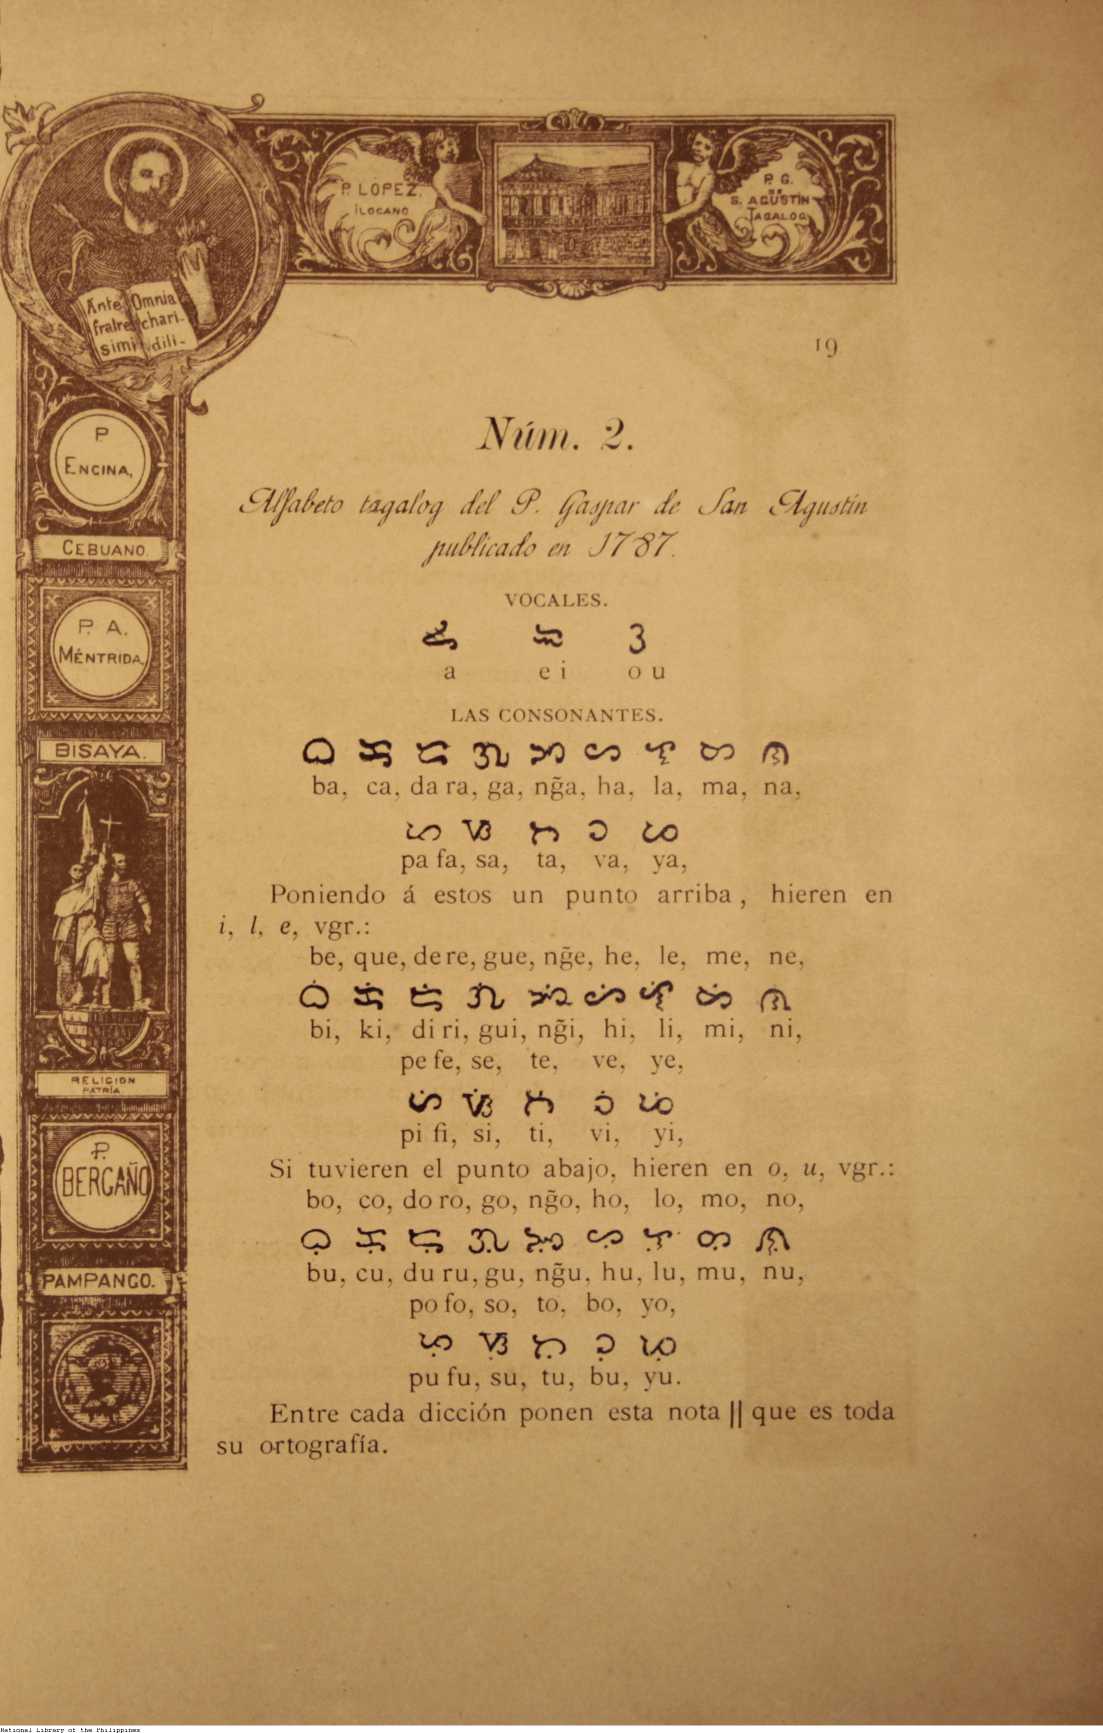 P. LOPEZ.
ILOCANO
P. G.
S. AGUSTIN
TAGALOG
Ante Omnia
fratres chari-
simi dili-
19
P
ENCINA,
CEBUANO.
P. A.
MÉNTRIDA,
BISAYA.
RELIGION
PATRÍA
P.
BERGAÑO
PAMPANGO.
Núm. 2.
Alfabeto tagalog del P. Gaspar de San Agustín
publicado en 1787.
VOCALES.
ᜀ ᜁ ᜂ
a e i o u
LAS CONSONANTES.
ᜊ ᜃ ᜇ ᜄ ᜅ ᜑ ᜎ ᜋ ᜈ
ba, ca, da ra, ga, ng̃a, ha, la, ma, na,
ᜉ ᜐ ᜆ ᜏ ᜌ
pa fa, sa, ta, va, ya,
Poniendo á estos un punto arriba, hieren en
i, l, e, vgr.:
be, que, de re, gue, ng̃e, he, le, me, ne,
ᜊᜒ ᜃᜒ ᜇᜒ ᜄᜒ ᜅᜒ ᜑᜒ ᜎᜒ ᜋᜒ ᜈᜒ
bi, ki, di ri, gui, ng̃i, hi, li, mi, ni,
pe fe, se, te, ve, ye,
ᜉᜒ ᜐᜒ ᜆᜒ ᜏᜒ ᜌᜒ
pi fi, si, ti, vi, yi,
Si tuvieren el punto abajo, hieren en o, u, vgr.:
bo, co, do ro, go, ng̃o, ho, lo, mo, no,
ᜊᜓ ᜃᜓ ᜇᜓ ᜄᜓ ᜅᜓ ᜑᜓ ᜎᜓ ᜋᜓ ᜈᜓ
bu, cu, du ru, gu, ng̃u, hu, lu, mu, nu,
po fo, so, to, bo, yo,
ᜉᜓ ᜐᜓ ᜆᜓ ᜏᜓ ᜌᜓ
pu fu, su, tu, bu, yu.
Entre cada dicción ponen esta nota || que es toda
su ortografía.
National Library of the Philippines